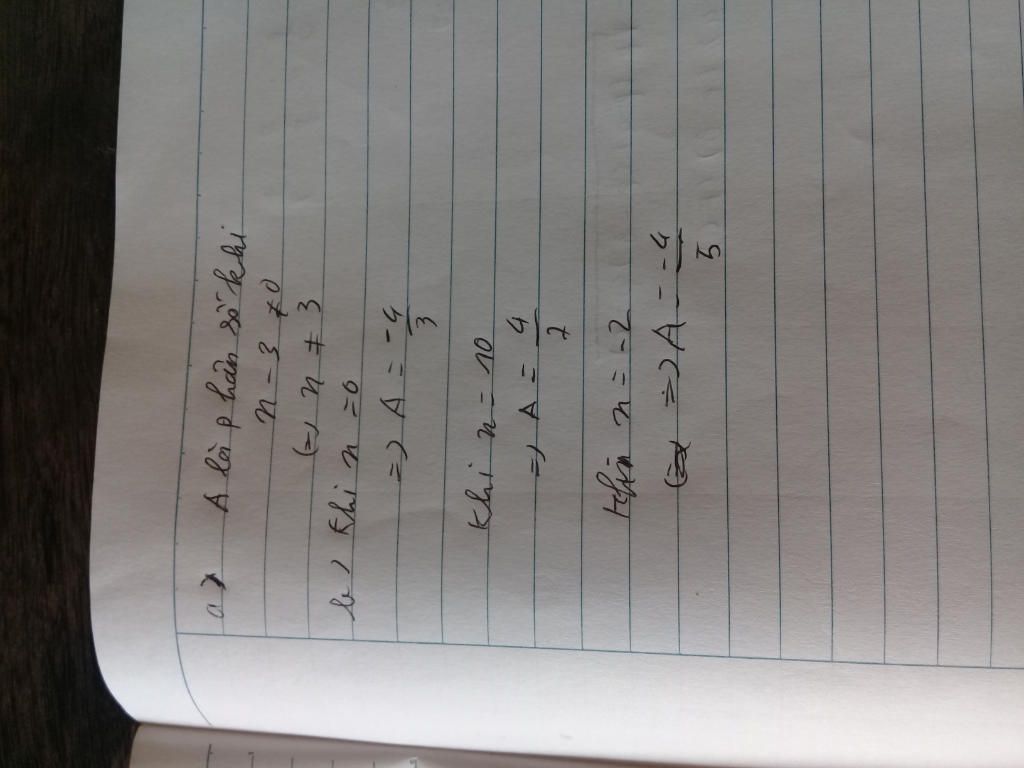 a) A là phân số khi
n - 3 ≠ 0
(=) n ≠ 3
b) Khi n = 0
=) A = -4/3
Khi n = 10
=) A = 4/7
Khi n = -2
=) A = -4/5